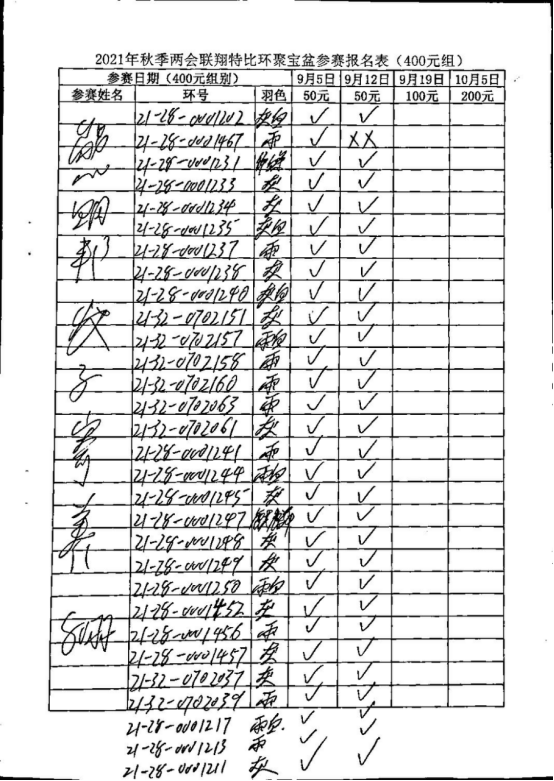 2021年秋季两会联翔特比环聚宝盆参赛报名表（400元组）
参赛日期（400元组别） 9月5日 9月12日 9月19日 10月5日
参赛姓名 环号 羽色 50元 50元 100元 200元
21-28-0001202 灰白 ✓ ✓
21-28-0001467 雨 ✓ XX
21-28-0001231 ✓ ✓
21-28-0001233 灰 ✓ ✓
21-28-0001234 灰 ✓ ✓
21-28-0001235 灰白 ✓ ✓
21-28-0001237 雨 ✓ ✓
21-28-0001238 灰 ✓ ✓
21-28-0001240 灰白 ✓ ✓
21-32-0702151 灰 ✓ ✓
21-32-0702157 雨白 ✓ ✓
21-32-0702158 雨 ✓ ✓
21-32-0702160 雨 ✓ ✓
21-32-0702063 雨 ✓ ✓
21-32-0702061 灰 ✓ ✓
21-28-0001241 雨 ✓ ✓
21-28-0001244 雨白 ✓ ✓
21-28-0001245 灰 ✓ ✓
21-28-0001247 ✓ ✓
21-28-0001248 灰 ✓ ✓
21-28-0001249 灰 ✓ ✓
21-28-0001250 雨白 ✓ ✓
21-28-0001452 灰 ✓ ✓
21-28-0001456 雨 ✓ ✓
21-28-0001457 灰 ✓ ✓
21-32-0702037 灰 ✓ ✓
21-32-0702039 雨 ✓ ✓
21-28-0001217 雨白. ✓ ✓
21-28-0001213 雨 ✓ ✓
21-28-0001211 灰 ✓ ✓